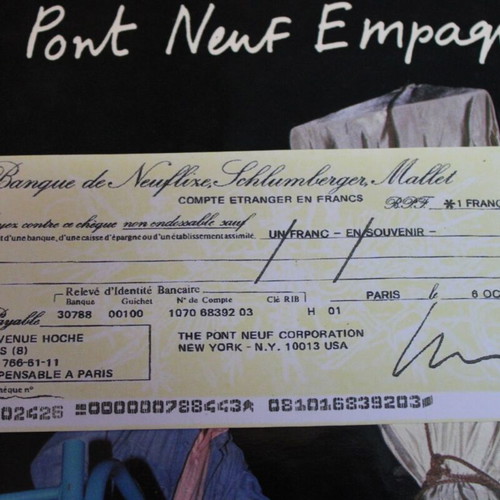 Pont Neuf Empaq
Banque de Neuflize, Schlumberger, Mallet
COMPTE ETRANGER EN FRANCS
B.P.F. *1 FRANC
yez contre ce chèque non endossable sauf
t d'une banque, d'une caisse d'épargne ou d'un établissement assimilé. UN FRANC - EN SOUVENIR -
Relevé d'Identité Bancaire
Banque Guichet N° de Compte Clé RIB
30788 00100 1070 68392 03 H 01
PARIS le 6 OC
Payable
VENUE HOCHE
S (8)
766-61-11
PENSABLE A PARIS
THE PONT NEUF CORPORATION
NEW YORK - N.Y. 10013 USA
hèque n°
02426 000000788443 081016839203